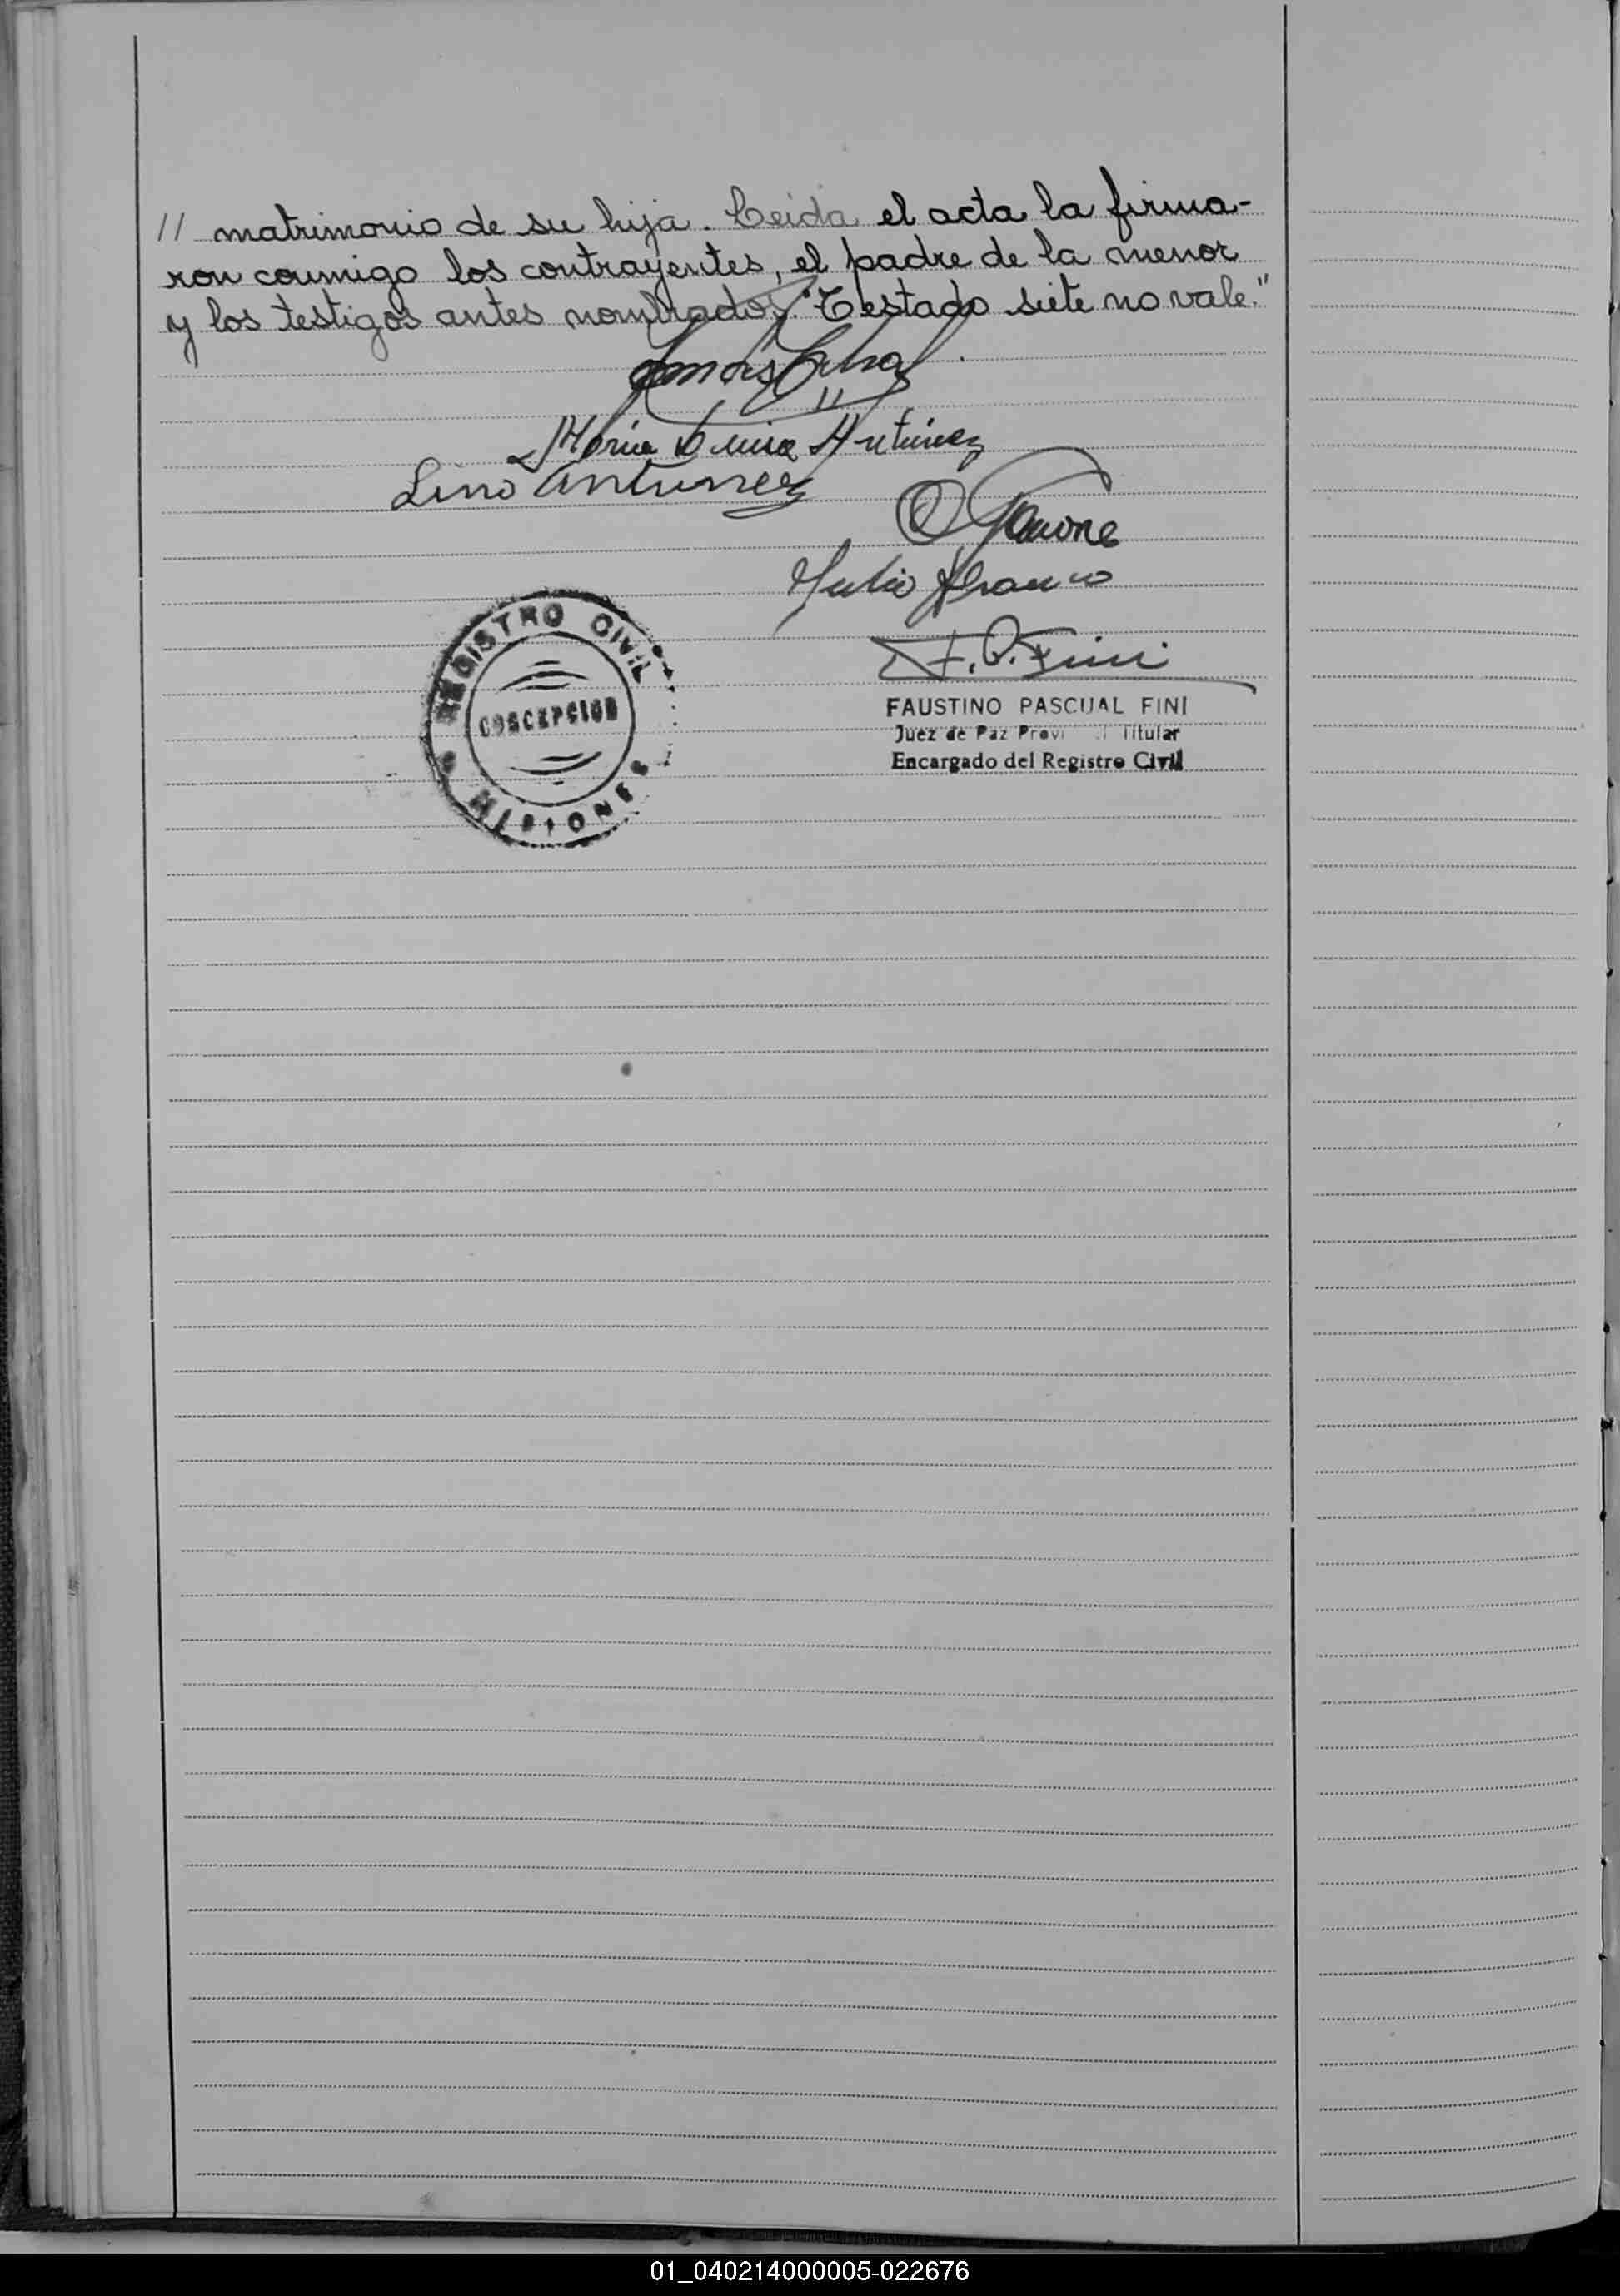 // matrimonio de su hija. Leida el acta la firma-
ron conmigo los contrayentes, el padre de la menor
y los testigos antes nombrados. "Testado siete no vale."
Maria Luisa Antunez
Lino Antunez
Julio Franco
F. P. Fini
REGISTRO CIVIL
CONCEPCION
MISIONES
FAUSTINO PASCUAL FINI
Juez de Paz Titular
Encargado del Registro Civil
01_040214000005-022676